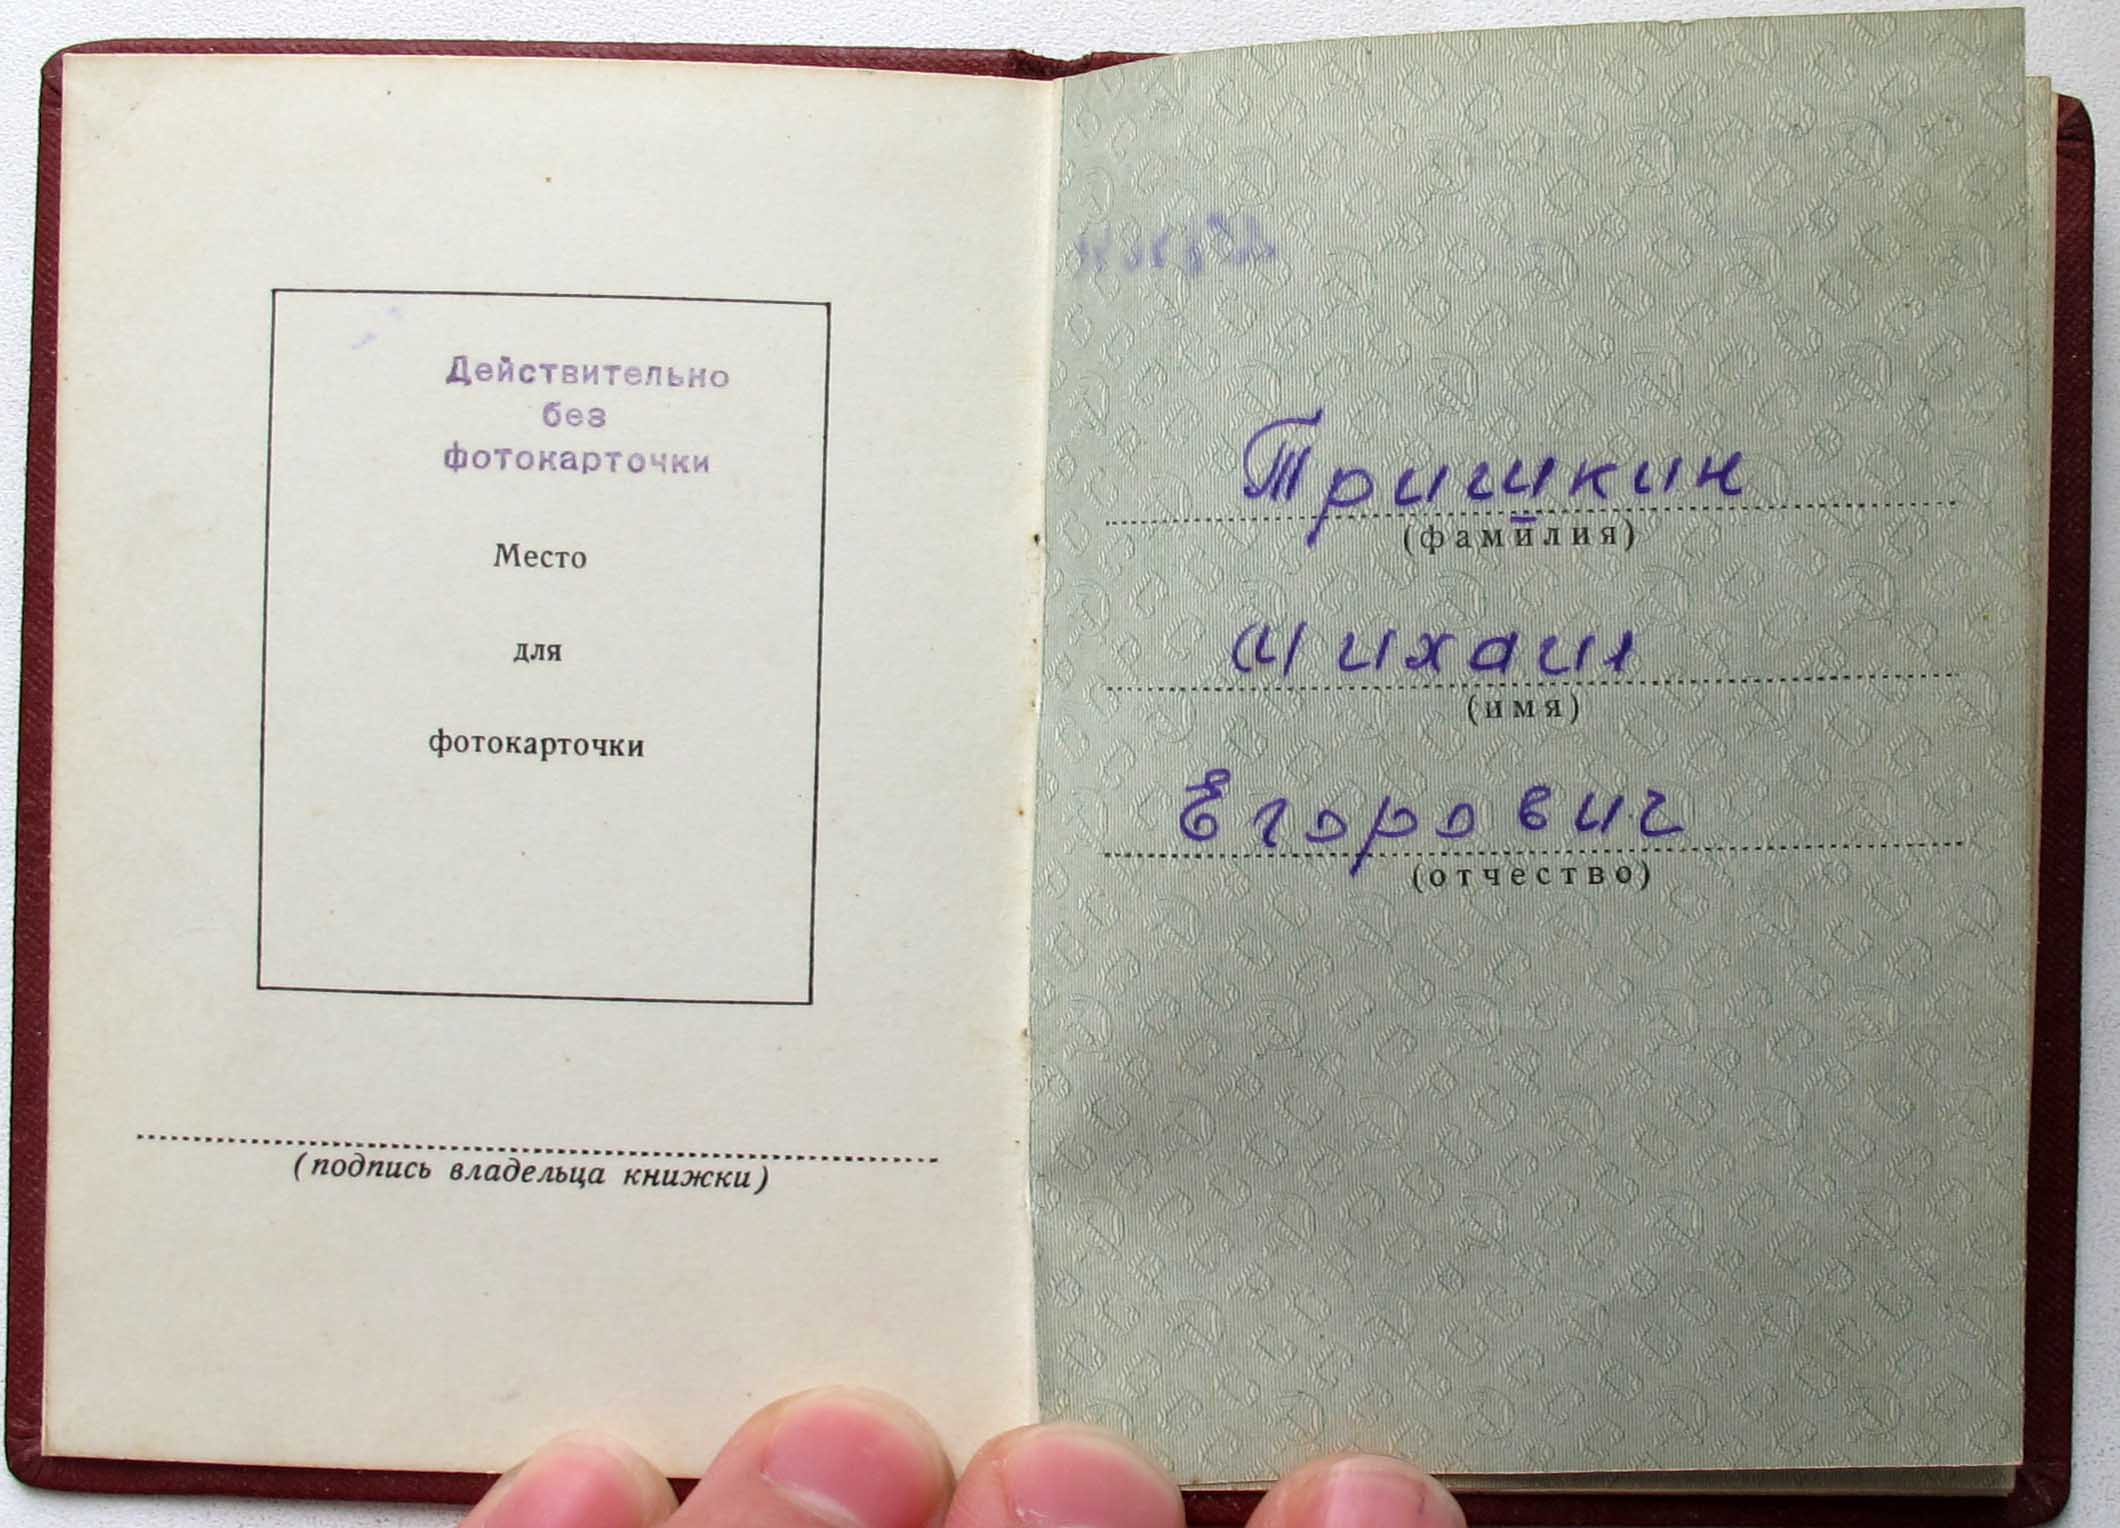 Действительно
без
фотокарточки
Место
для
фотокарточки
(подпись владельца книжки)
Тришкин
(фамилия)
Михаил
(имя)
Егорович
(отчество)